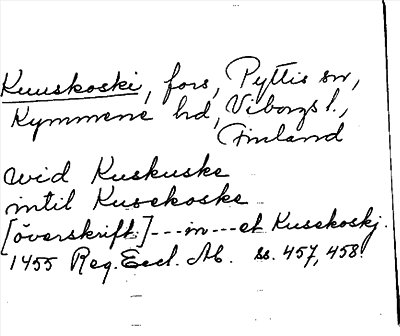 Kuuskoski, fors, Pyttis sn,
Kymmene hd, Viborgs l.,
Finland
wid Kuskuske
intil Kusekoske
[överskrift:] --- in --- et Kusekoskj.
1455 Reg. Eccl. Ab. ss. 457, 458.